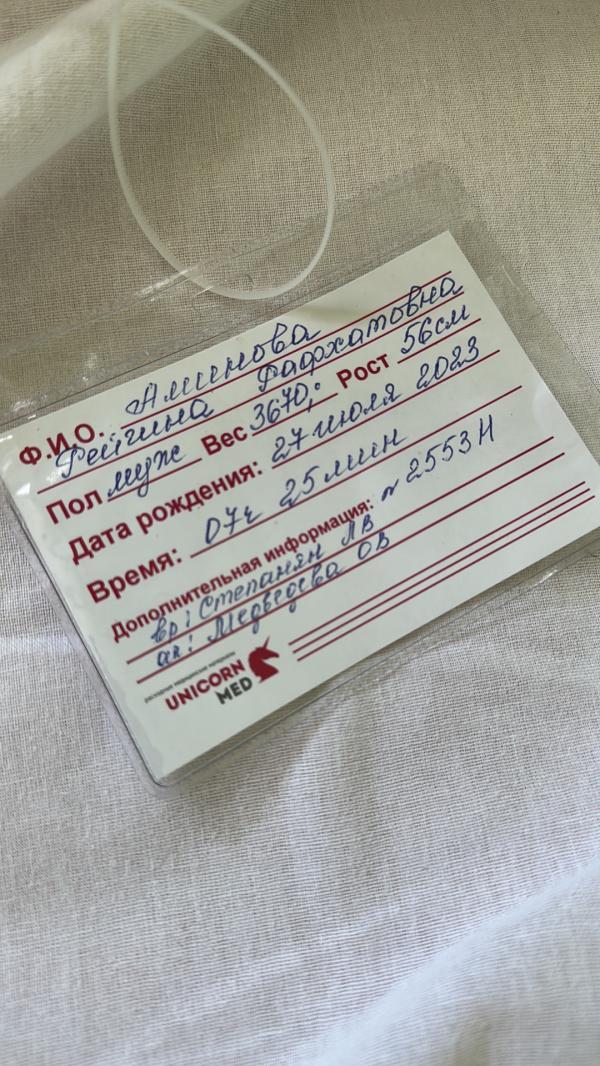 Ф.И.О. Аминова
Рейгина Фархатовна
Пол муж Вес 3670,: Рост 56см
Дата рождения: 27 июля 2023
Время: 07ч 25мин
Дополнительная информация: № 2553Н
вр: Степанян ЛВ
ак: Медведева ОВ
UNICORN
MED